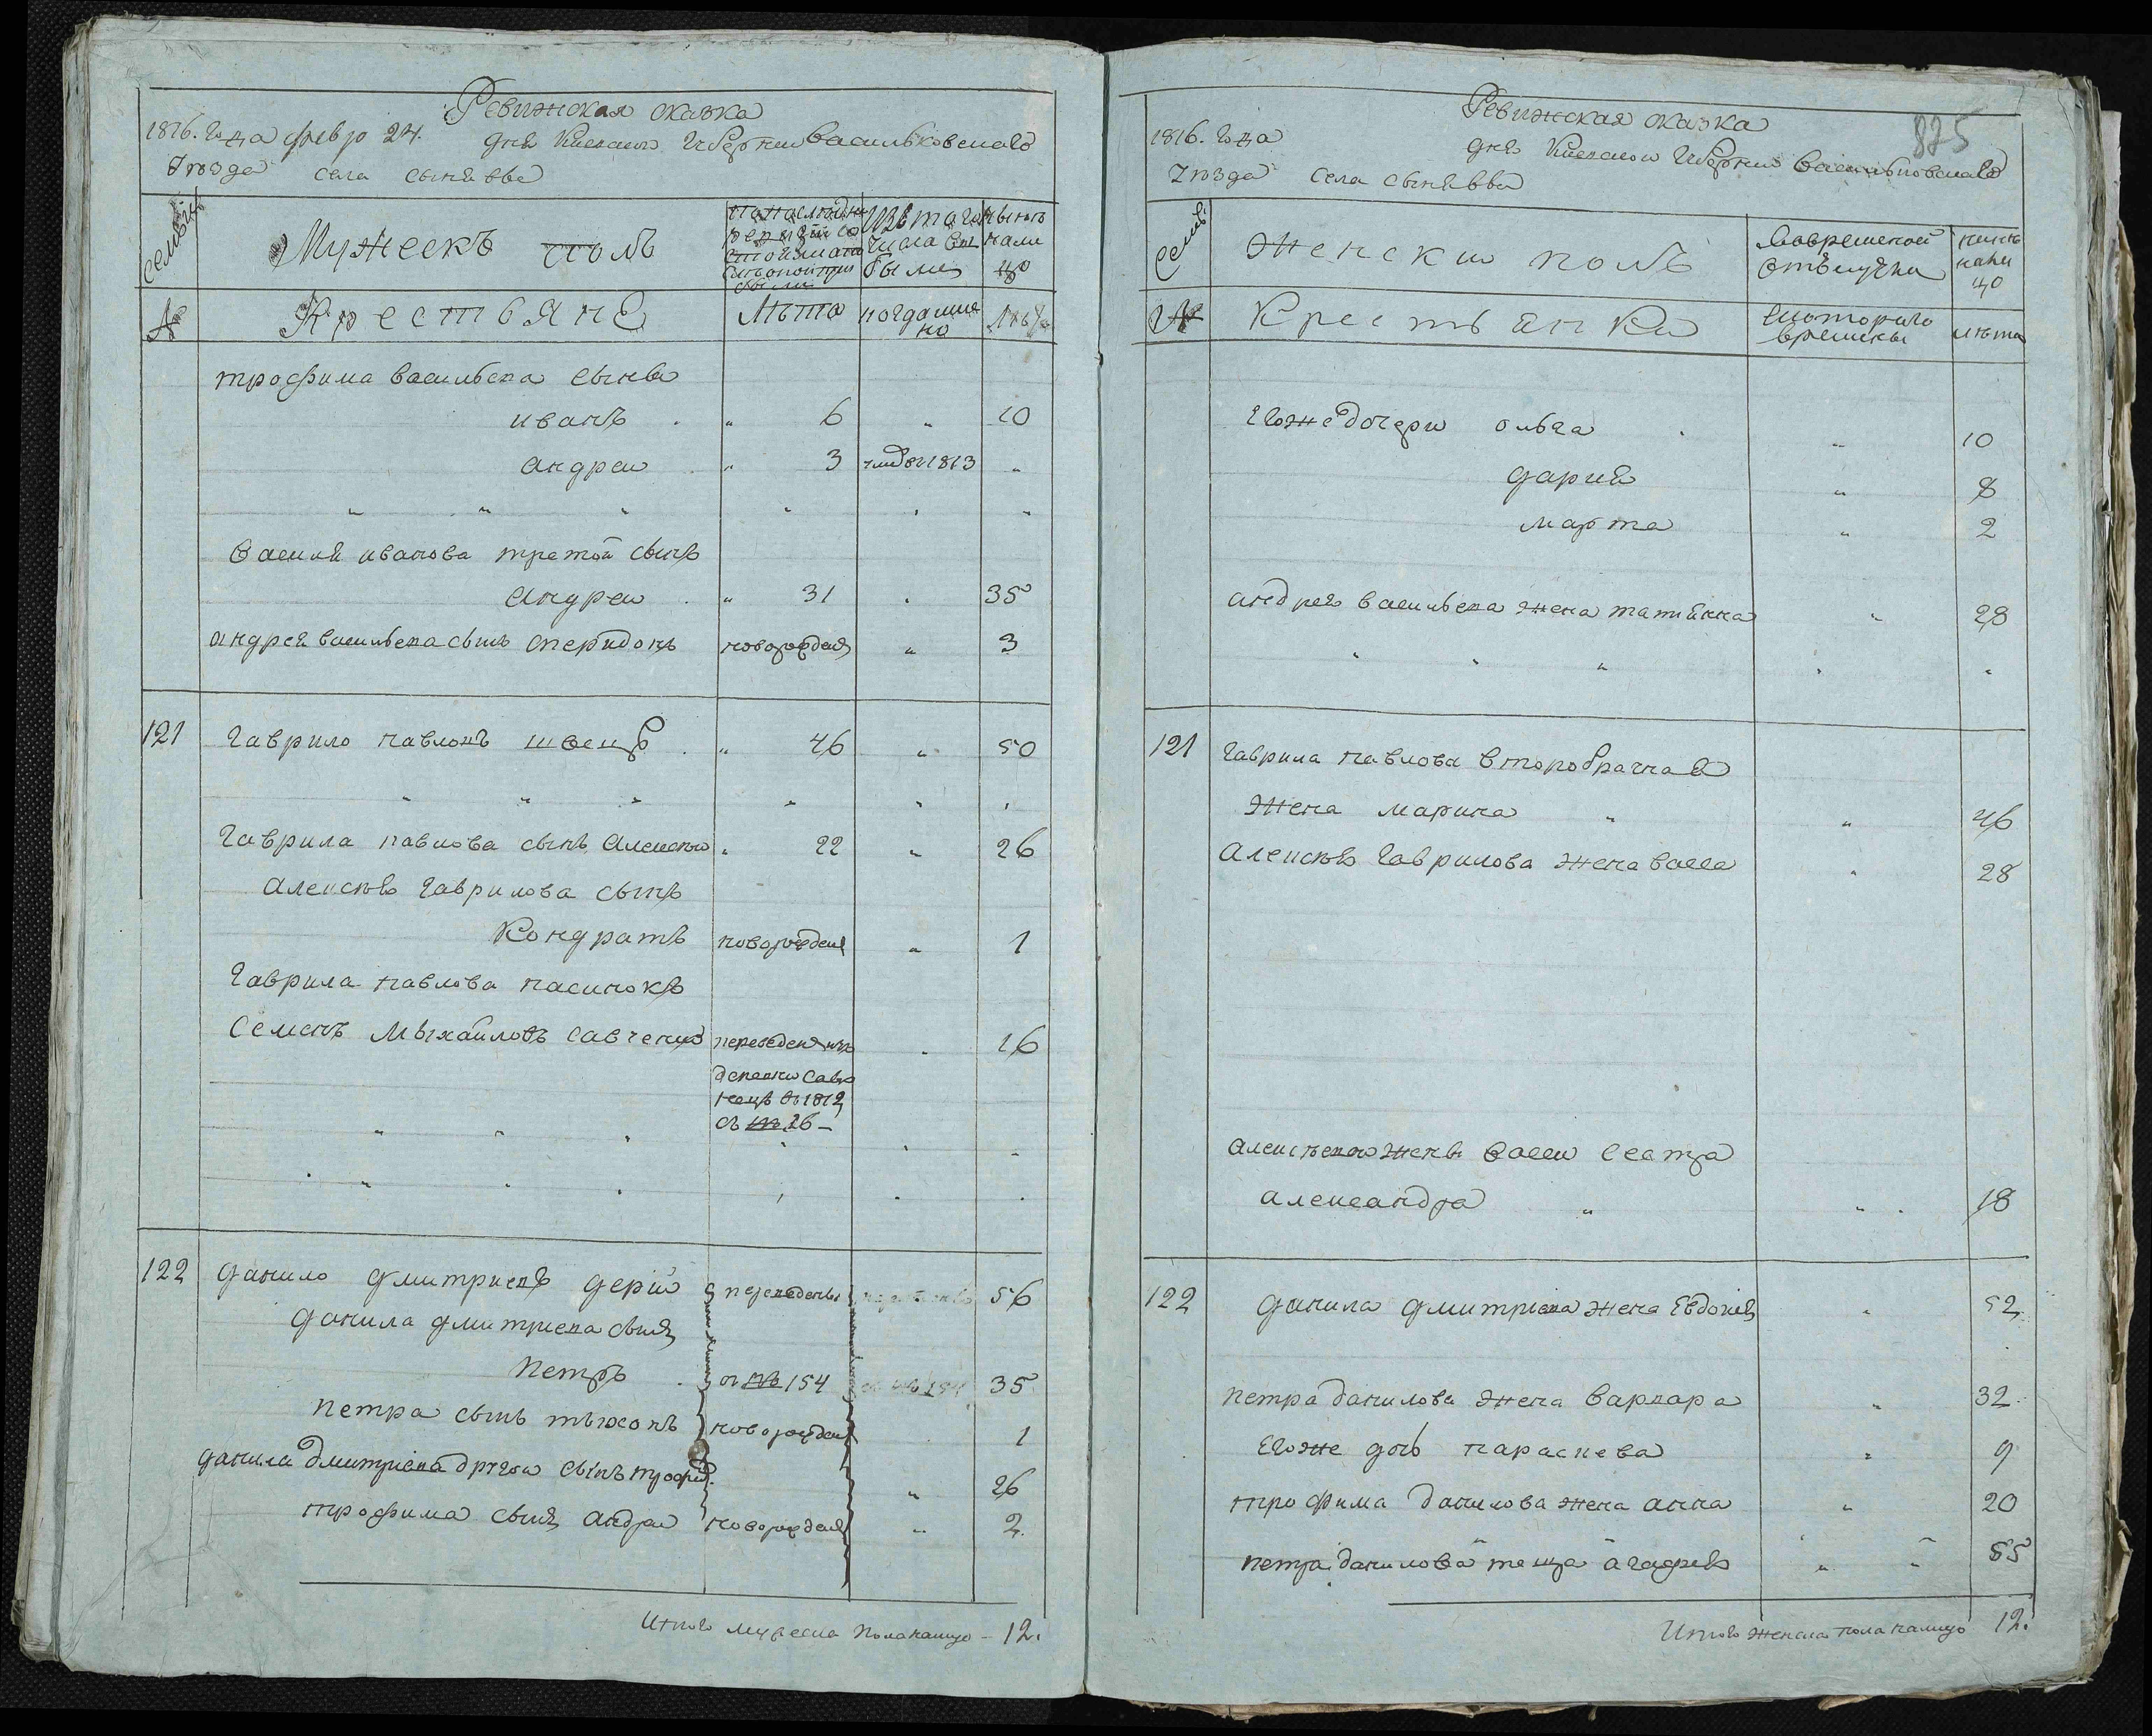 Ревижская сказка
1816. Года февр 24. дня Киевской Губернии Васильковскаго
Уезда села сынявы
Семьи
Мужескъ полъ
по последней ревизии состояло и после оной прибыли
Изъ того числа выбыли
Ныне на лицо
№
Крестьяне
Лета
когда именно
Лета
трофима васильева сыны
иванъ . " 6 " 10
андреи . " 3 умр въ 1813 "
" " " " " "
Василия иванова третой сынъ
андреи . " 31 . 35
андрея васильева сынъ спиридонъ новорожденъ " 3
121 гаврило павловъ швецъ . " 46 " 50
" " " " " "
гаврила павлова сынъ алексеи " 22 " 26
алексея гаврилова сынъ
Кондратъ новорожден " 1
гаврила павлова пасинокъ
Семенъ Мыхайловъ савченко переведен изъ " 16
въ 1812
съ № 26 –
" " " " " "
" " " " " "
122 данило дмитриевъ дерий переведены 56
данила дмитриева сынъ
петръ . съ № 154 съ № 154 35
петра сынъ тыхонъ новорожден 1
данила дмитриева другой сынъ трофим " 26
трофима сынъ андреи новорожден " 2.
Итого мужеска пола налицо – 12.
Ревижская сказка
825
1816. года дня Киевской Губернии Васильковскаго
Уезда села сынявы
Семьи
Женски полъ
Во временной отълучки
ныне налицо
№
Крестьянки
с котораго времены
лета
Егоже дочери ольга . " 10
дария " 8
марта " 2
андрея васильева жена татиянна " 28
" " " " "
121 гаврила павлова второбрачная
жена марина " " 46
алексея гаврилова жена васса " 28
алексеевой жены вассы сестра
александра " " . 18
122 данила дмитриева жена Евдокия " 52
петра данилова жена варвара " 32.
Егоже дочь параскева " 9
трофима данилова жена анна " 20
петра данилова теща агафия " " 55
Итого женска пола налицо 12.